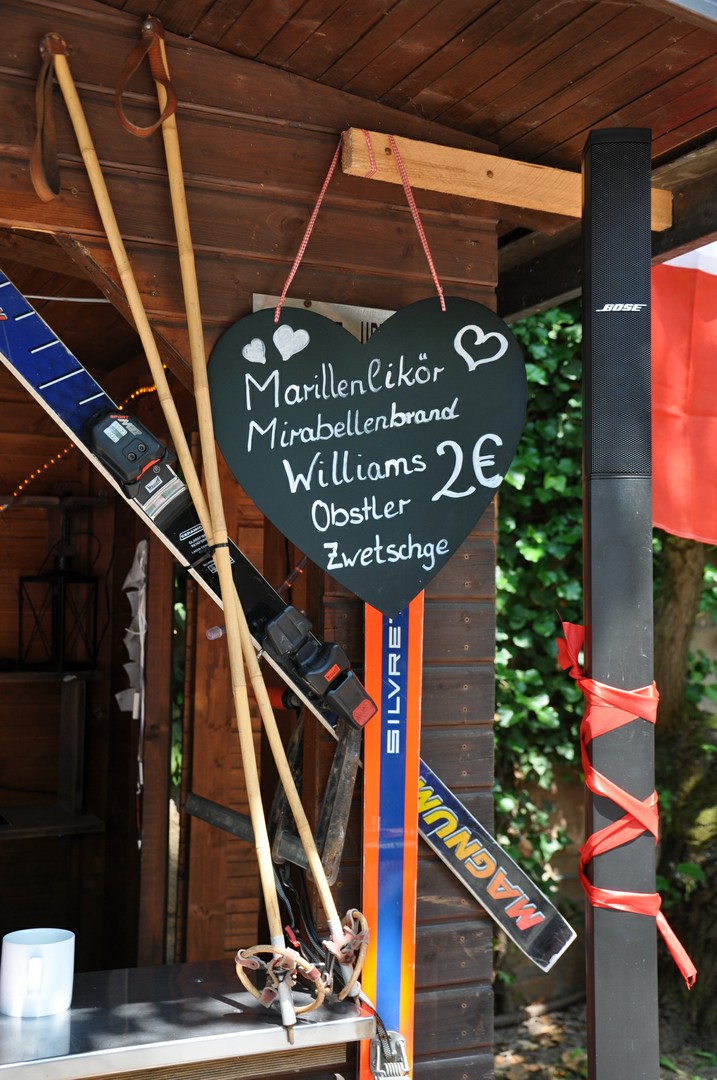 BOSE
Marillenlikör
Mirabellenbrand
Williams 2€
Obstler
Zwetschge
SILVRET
MAGNUM